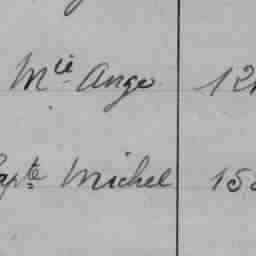 Mie Ange 12
apte Michel 15